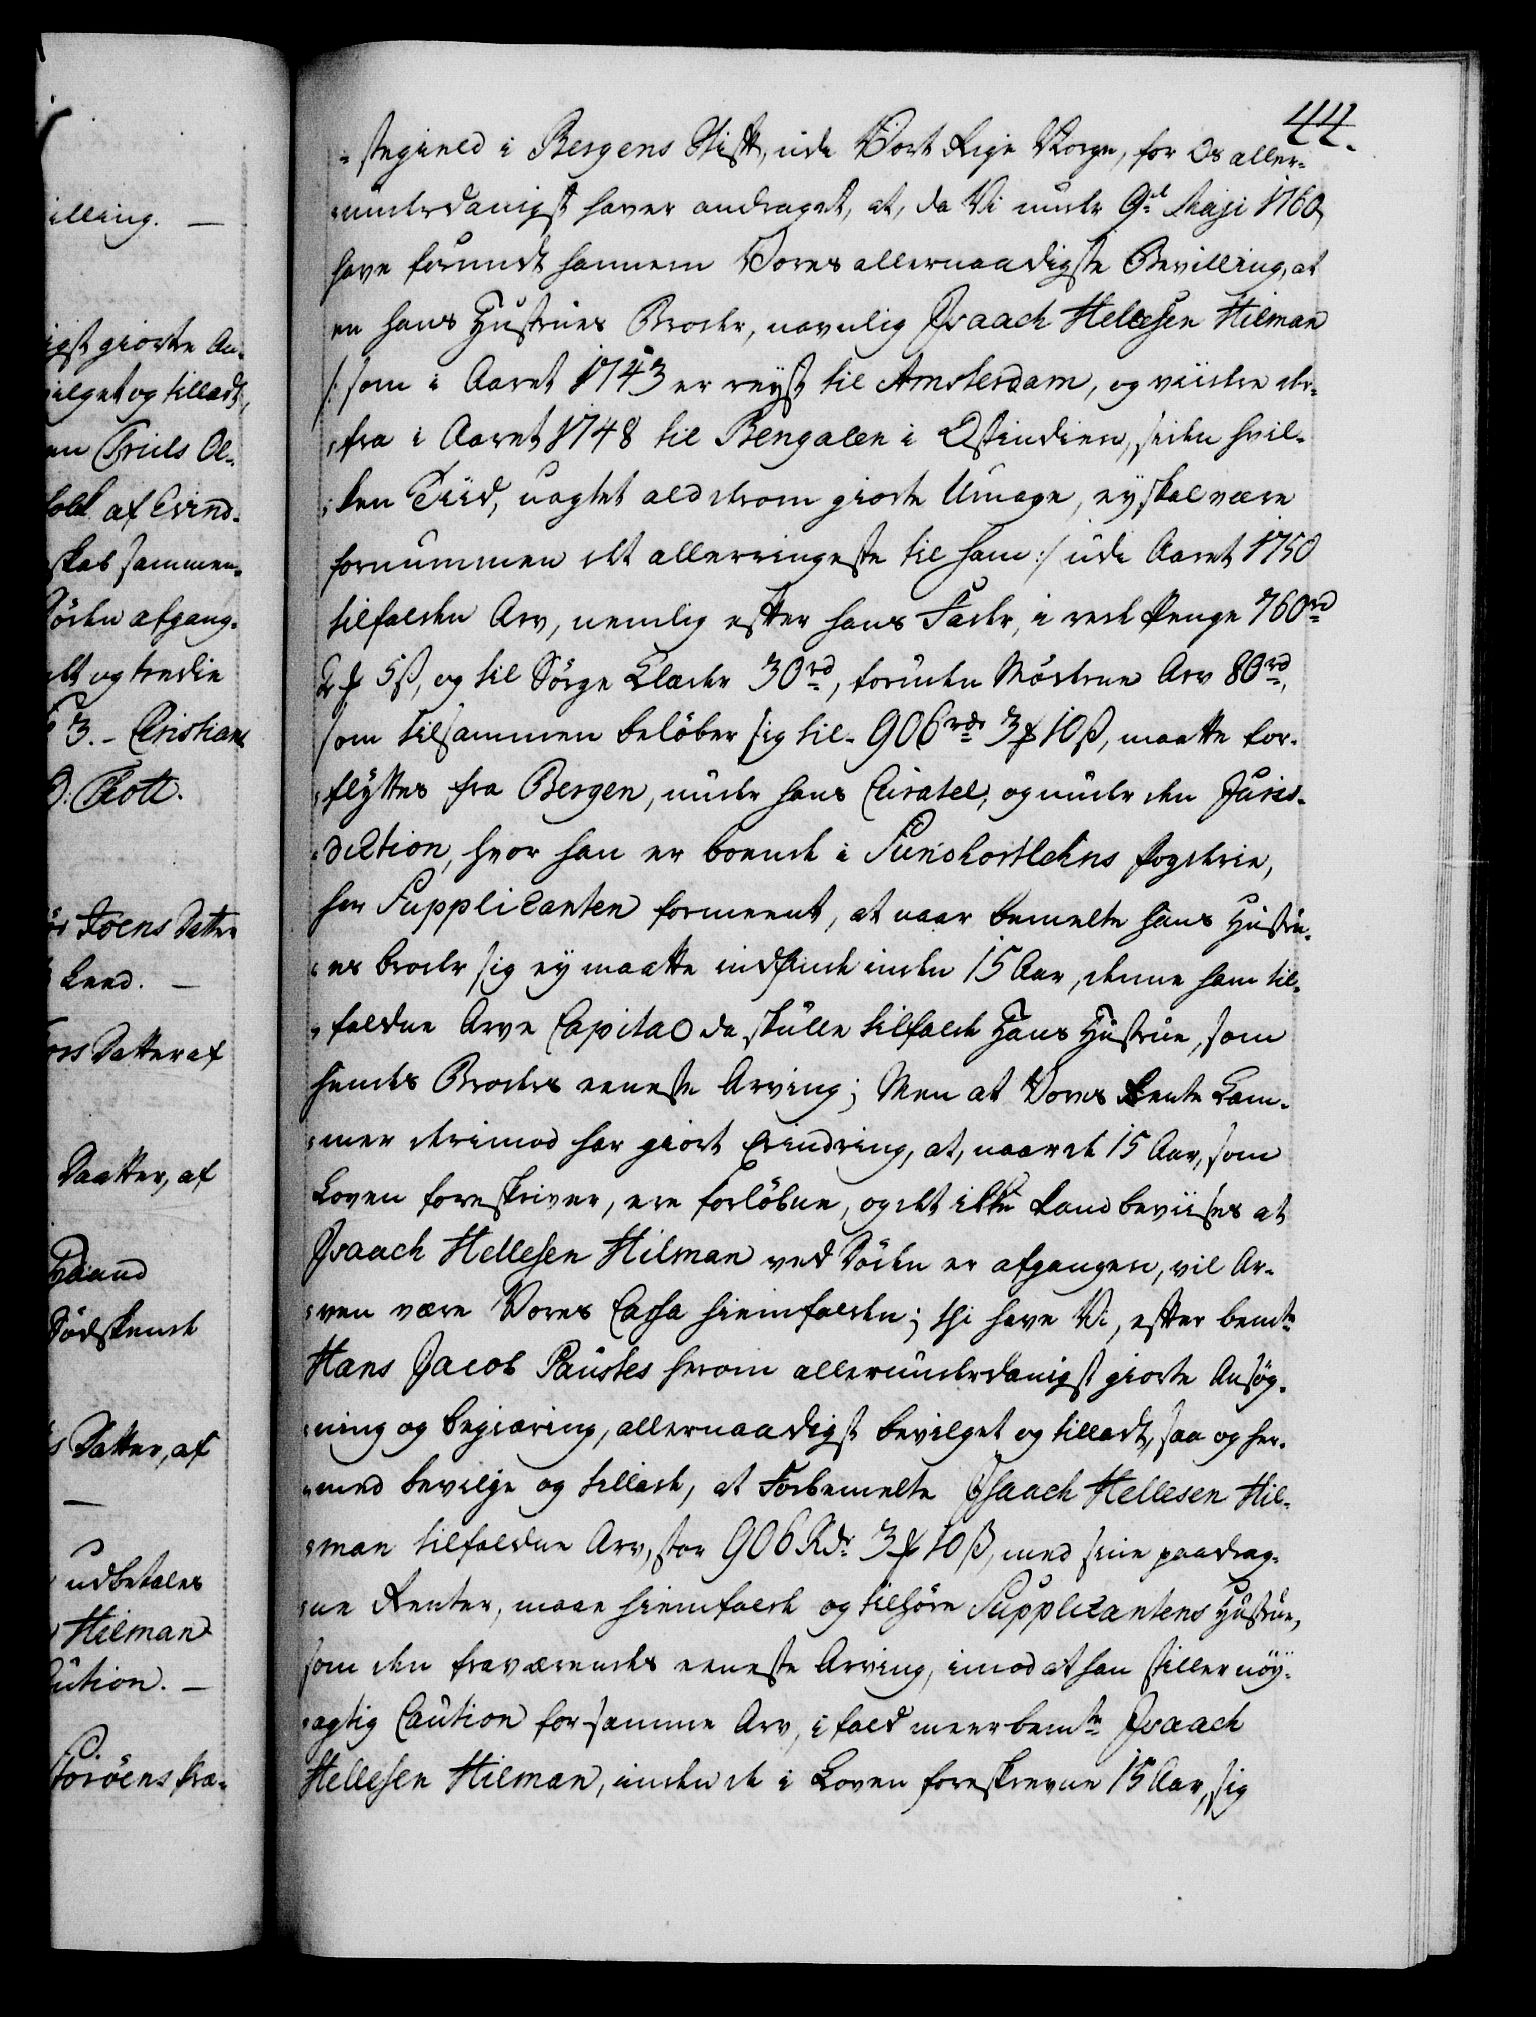 44.
-stegined i Bergens Stift, udi Vort Rige Norge, for Os aller-
-underdanigst haver andraget, at, da Vi under 9de Maji 1760,
have forundt hannem Vores allernaadigste Bevilling, at
en hans Hustrues Broder, navnlig Isaach Hellesen Hilman
/: som i Aaret 1743 er reyst til Amsterdam, og viidere der-
-fra i Aaret 1748 til Bengalen i Ostindien, siden hvil-
-ken Tiid, uagtet ald derom giorte Umage, ey skal være
fornummen det allerringeste til ham :/ udi Aaret 1750
tilfalden Arv, nemlig efter hans Fader, i rede Penge 760 rd
2 ℔ 5 ß, og til Sørge Klæder 30 rd, foruden Mødrene Arv 80 rd,
som tilsammen beløber sig til 906 rdr 3 ℔ 10 ß, maatte for-
-flyttes fra Bergen, under hans Curatel, og under den Juris-
-diction, hvor han er boende i Sundhortlehns fogderie,
har Supplicanten formeent, at naar bemelte hans Hustru-
-es broder sig ey maatte indfinde inden 15 Aar, denne ham til-
-faldne Arve Capital da skulle tilfalde Hans Hustrue, som
hendes Broders eeneste Arving; Men at Vores Rente Kam-
-mer derimod har giort Erindring, at, naar de 15 Aar, som
Loven foreskriver, ere forløbne, og det ikke kand beviises at
Isaach Hellesen Hilman ved Døden er afgangen, vil Ar-
-ven være Vores Cassa hiemfalden; thi have Vi, efter bemte
Hans Jacob Paustes herom allerunderdanigst giorte Ansøg-
-ning og begiæring, allernaadigst bevilget og tilladt, saa og her-
-med bevilge og tillade, at Forbemelte Isaach Hellesen Hil-
-man tilfaldne Arv, stor 906 Rdr 3 ℔ 10 ß, med sine paadrag-
-ne Renter, maae hiemfalde og tilhøre Supplicantens Hustrue,
som den fraværendes eeneste Arving, imod at han stiller nøy-
-agtig Caution for samme Arv, i fald meerbemte Isaach
Hellesen Hilman, inden de i Loven foreskrevne 15 Aar, sig
illing. —
igst giorte An-
vilget og tilladt,
en Friels Ol-
fold af Evind-
skab sammen-
Døden afgang-
ldt og tredie
3. - Christians
D: Rott.
Joens Datter
Lend. —
ors Datter af
Daatter, af
Haand
Sødskende
s Datter, af
—
udbetales
Hilman
Caution. —
Torøens fra-